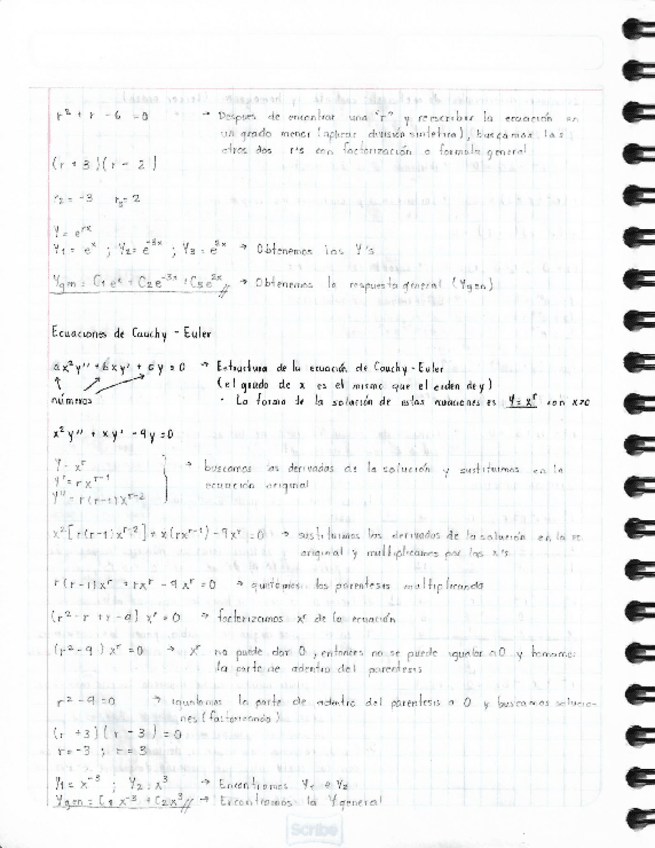 r² + r - 6 = 0 → Después de encontrar una "r" y reescribir la ecuación en
un grado menor (aplicar división sintetica), buscamos las
otros dos r's con factorización o formula general
(r + 3)(r - 2)
r₂ = -3 r₃ = 2
Y = e^rx
Y₁ = e^x ; Y₂ = e^-3x ; Y₃ = e^2x → Obtenemos las Y's
Ygen = C₁e^x + C₂e^-3x + C₃e^2x // → Obtenemos la respuesta general (Ygen)
Ecuaciones de Cauchy - Euler
ax²y'' + bxy' + cy = 0 → Estructura de la ecuación de Cauchy - Euler
(el grado de x es el mismo que el orden de y)
números · La forma de la solución de estas ecuaciones es y = x^r con x>0
x²y'' + xy' - 9y = 0
Y = x^r
y' = rx^r-1 → buscamos las derivadas de la solución y sustituimos en la
ecuación original
y'' = r(r-1)x^r-2
x²[r(r-1)x^r-2] + x(rx^r-1) - 9x^r = 0 → sustituimos las derivadas de la solución en la ec
original y multiplicamos por las x's
r(r-1)x^r + rx^r - 9x^r = 0 → quitamos los parentesis multiplicando
(r² - r + r - 9) x^r = 0 → factorizamos x^r de la ecuación
(r² - 9) x^r = 0 → x^r no puede dar 0, entonces no se puede igualar a 0 y tomamos
la parte de adentro del parentesis
r² - 9 = 0 → igualamos la parte de adentro del parentesis a 0 y buscamos solucio-
nes (factorizando)
(r + 3)(r - 3) = 0
r = -3 ; r = 3
Y₁ = x^-3 ; Y₂ = x^3 → Encontramos Y₁ e Y₂
Ygen = C₁x^-3 + C₂x^3 // → Encontramos la Y general
Scribe